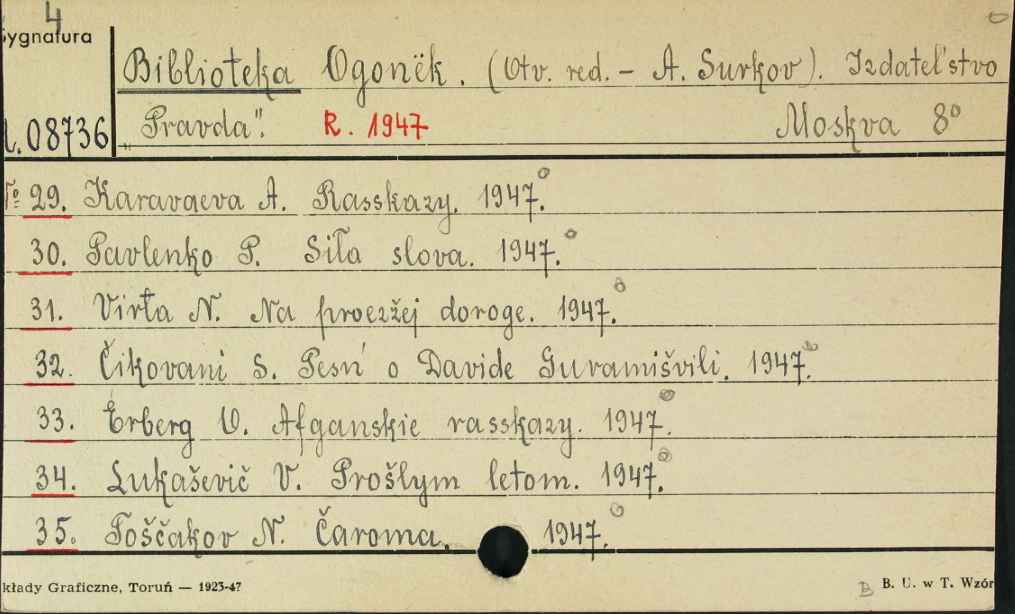 4
Sygnatura
Biblioteka Ogonëk. (Otv. red. - A. Surkov). Izdateľstvo
08736 „Pravda". R. 1947 Moskva 8°
№ 29. Karavaeva A. Rasskazy. 1947.
30. Pavlenko P. Siła slova. 1947.
31. Virta N. Na proezžej doroge. 1947.
32. Čikovani S. Pesń o Davide Guramišvili. 1947.
33. Erberg O. Afganskie rasskazy. 1947.
34. Lukaševič V. Prošlym letom. 1947.
35. Toščakov N. Čaroma. 1947.
kłady Graficzne, Toruń — 1923-47 B. U. w T. Wzór